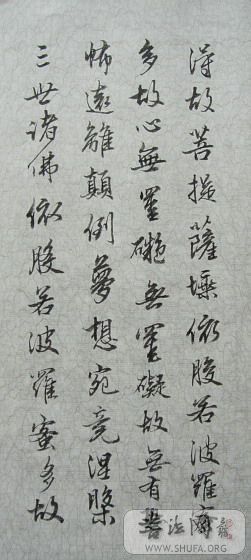 得故菩提薩埵依般若波羅蜜
多故心無罣礙無罣礙故無有
怖遠離顛倒夢想究竟涅槃
三世諸佛依般若波羅蜜多故
WWW.SHUFA.ORG